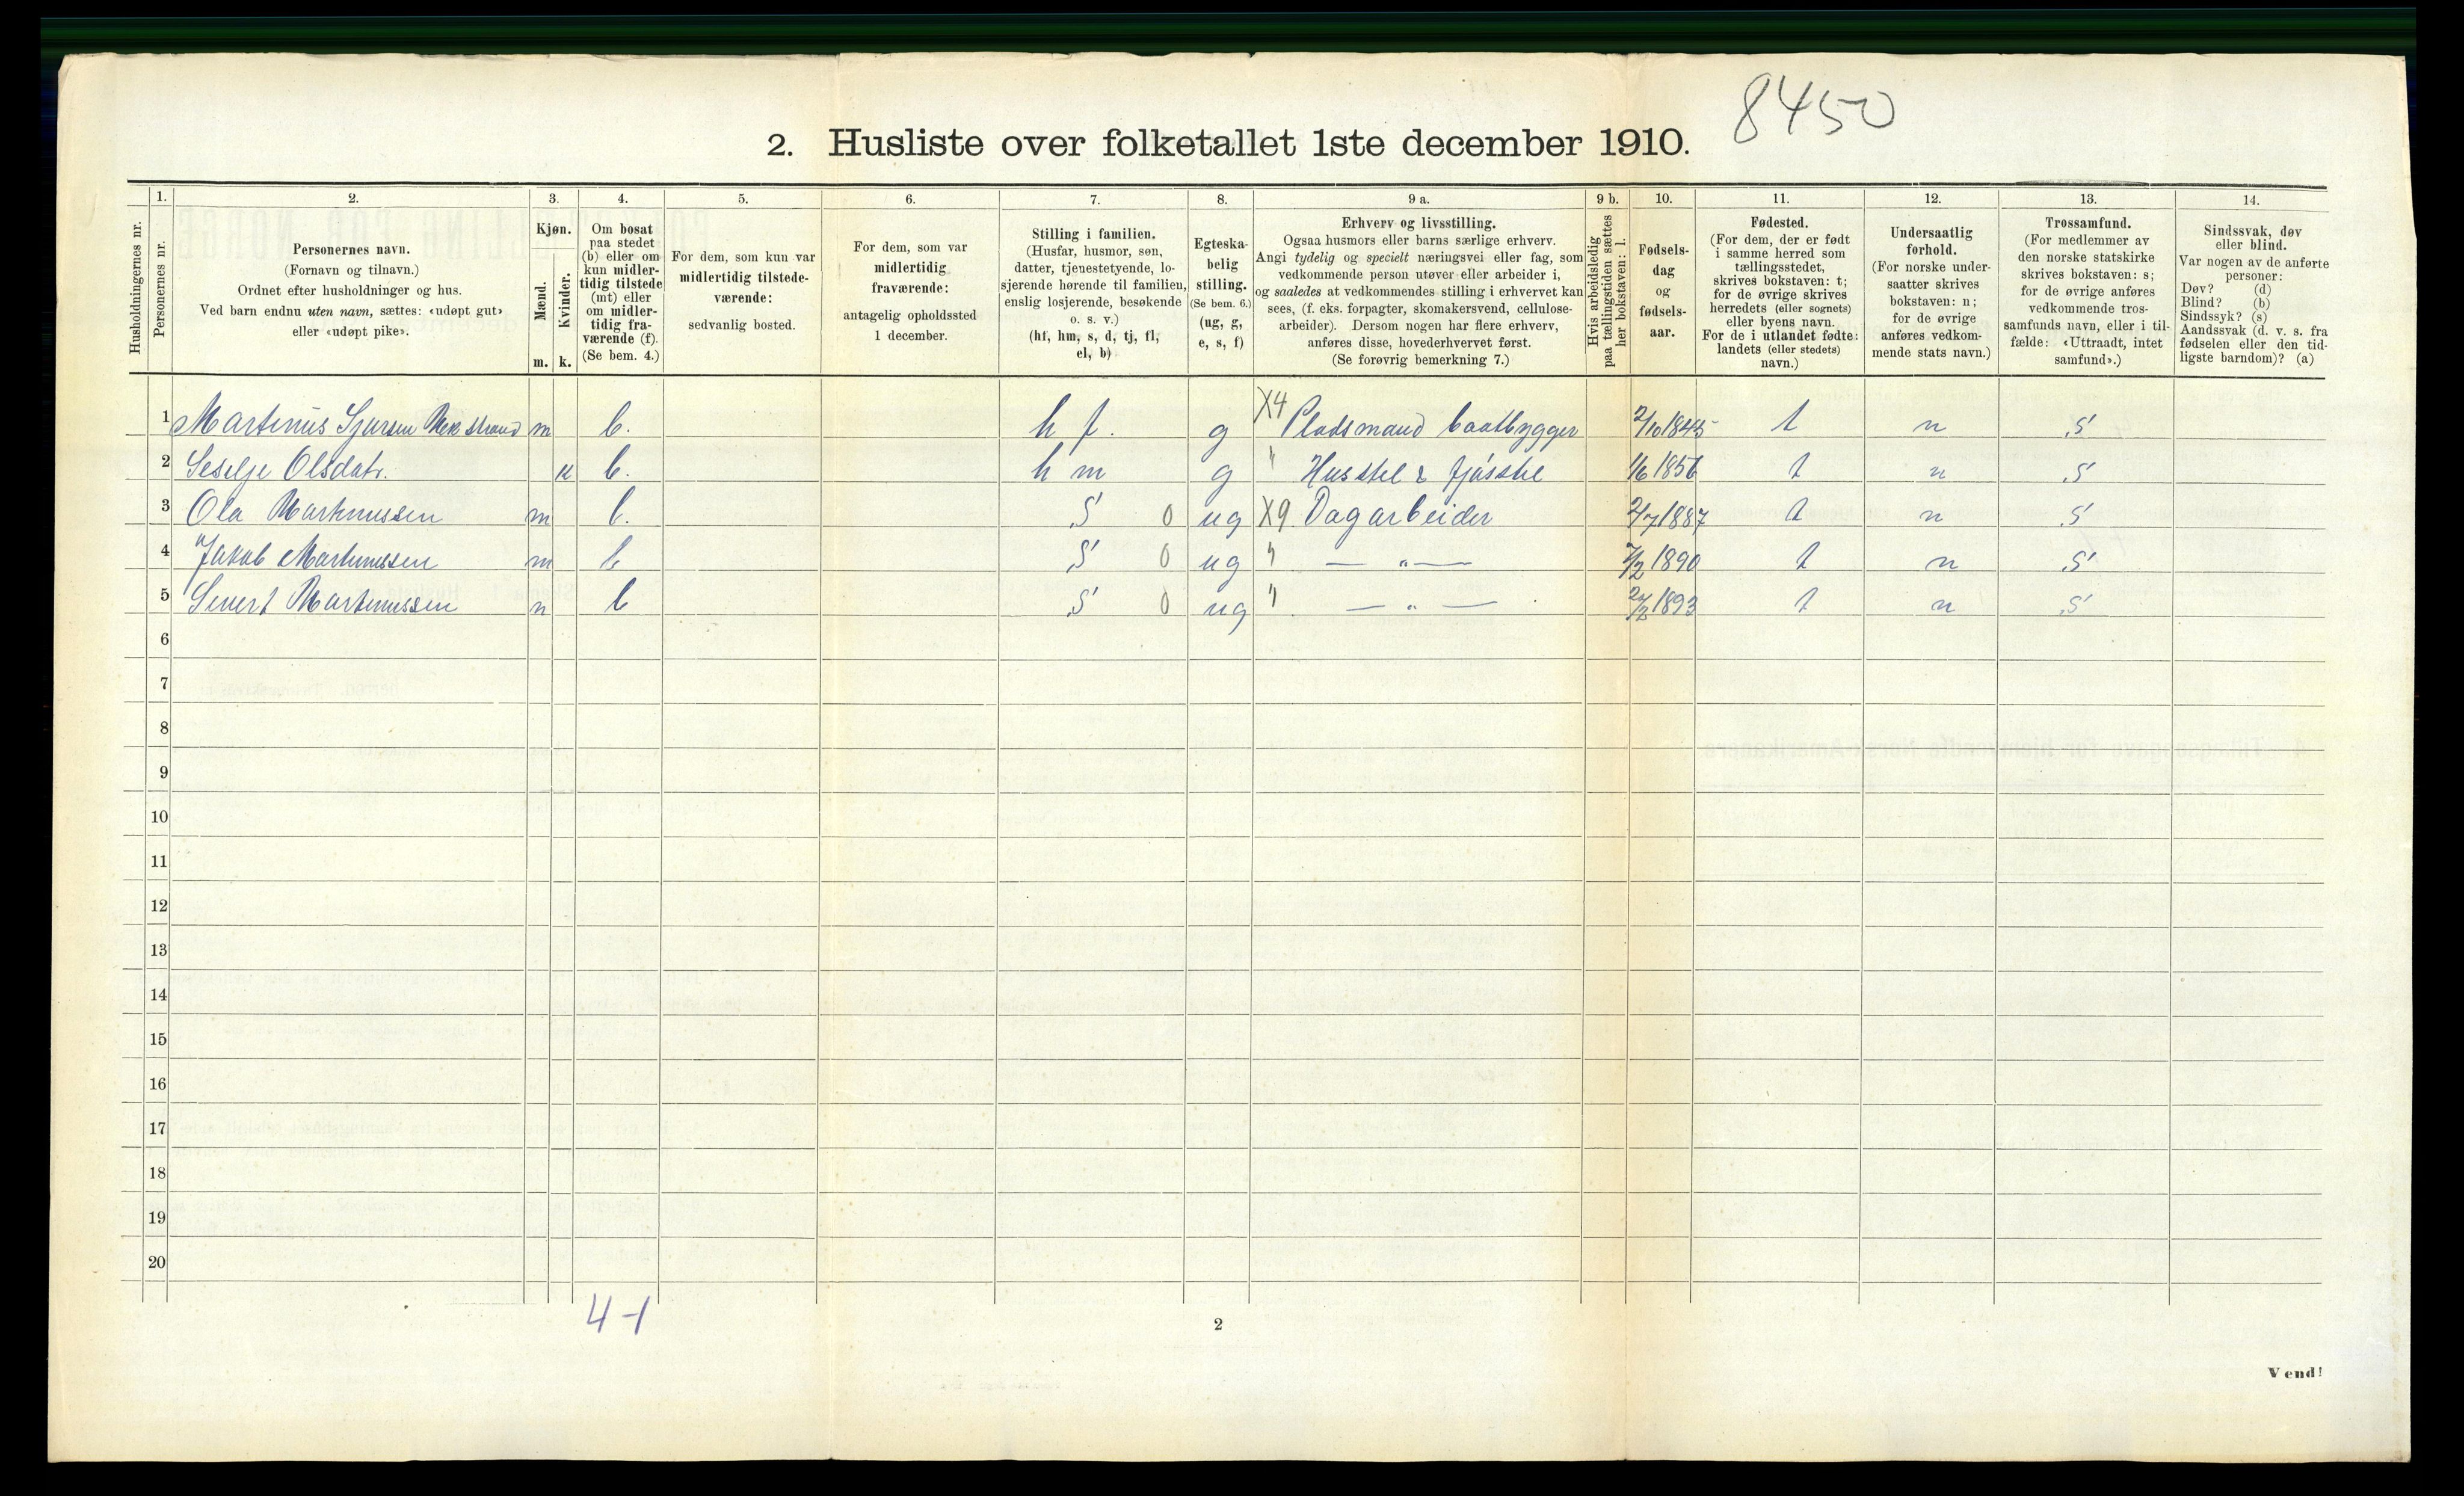 8450
2. Husliste over folketallet 1ste december 1910.
Husholdningernes nr.
1.
Personernes nr.
2.
Personernes navn.
(Fornavn og tilnavn.)
Ordnet efter husholdninger og hus.
Ved barn endnu uten navn, sættes: «udøpt gut»
eller «udøpt pike».
3.
Kjøn.
Mænd.
m.
Kvinder.
k.
4.
Om bosat
paa stedet
(b) eller om
kun midler-
tidig tilstede
(mt) eller
om midler-
tidig fra-
værende (f).
(Se bem. 4.)
5.
For dem, som kun var
midlertidig tilstede-
værende:
sedvanlig bosted.
6.
For dem, som var
midlertidig
fraværende:
antagelig opholdssted
1 december.
7.
Stilling i familien.
(Husfar, husmor, søn,
datter, tjenestetyende, lo-
sjerende hørende til familien,
enslig losjerende, besøkende
o. s. v.)
(hf, hm, s, d, tj, fl,
el, b)
8.
Egteska-
belig
stilling.
(Se bem. 6.)
(ug, g,
e, s, f)
9 a.
Erhverv og livsstilling.
Ogsaa husmors eller barns særlige erhverv.
Angi tydelig og specielt næringsvei eller fag, som
vedkommende person utøver eller arbeider i,
og saaledes at vedkommendes stilling i erhvervet kan
sees, (f. eks. forpagter, skomakersvend, cellulose-
arbeider). Dersom nogen har flere erhverv,
anføres disse, hovederhvervet først.
(Se forøvrig bemerkning 7.)
9 b.
Hvis arbeidsledig
paa tællingstiden sættes
her bokstaven: l.
10.
Fødsels-
dag
og
fødsels-
aar.
11.
Fødested.
(For dem, der er født
i samme herred som
tællingsstedet,
skrives bokstaven: t;
for de øvrige skrives
herredets (eller sognets)
eller byens navn.
For de i utlandet fødte:
landets (eller stedets)
navn.)
12.
Undersaatlig
forhold.
(For norske under-
saatter skrives
bokstaven: n;
for de øvrige
anføres vedkom-
mende stats navn.)
13.
Trossamfund.
(For medlemmer av
den norske statskirke
skrives bokstaven: s;
for de øvrige anføres
vedkommende tros-
samfunds navn, eller i til-
fælde: «Uttraadt, intet
samfund».)
14.
Sindssvak, døv
eller blind.
Var nogen av de anførte
personer:
Døv? (d)
Blind? (b)
Sindssyk? (s)
Aandssvak (d. v. s. fra
fødselen eller den tid-
ligste barndom)? (a)
1 Martinus Sjursen m b. h f. g X4 Pladsmand baatbygger 2/10 1845 t n S
2 Seselje Olsdatr. k b. h m g " Husstel & fjøsstel 1/6 1856 t n S
3 Ola Martinussen m b. S 0 ug X9 Dagarbeider 2/7 1887 t n S
4 Jakob Martinussen m b S 0 ug " — " — 7/2 1890 t n S
5 Sivert Martinussen m b S 0 ug " — " — 1893 t n S
6
7
8
9
10
11
12
13
14
15
16
17
18
19
20
4-1
2
Vend!